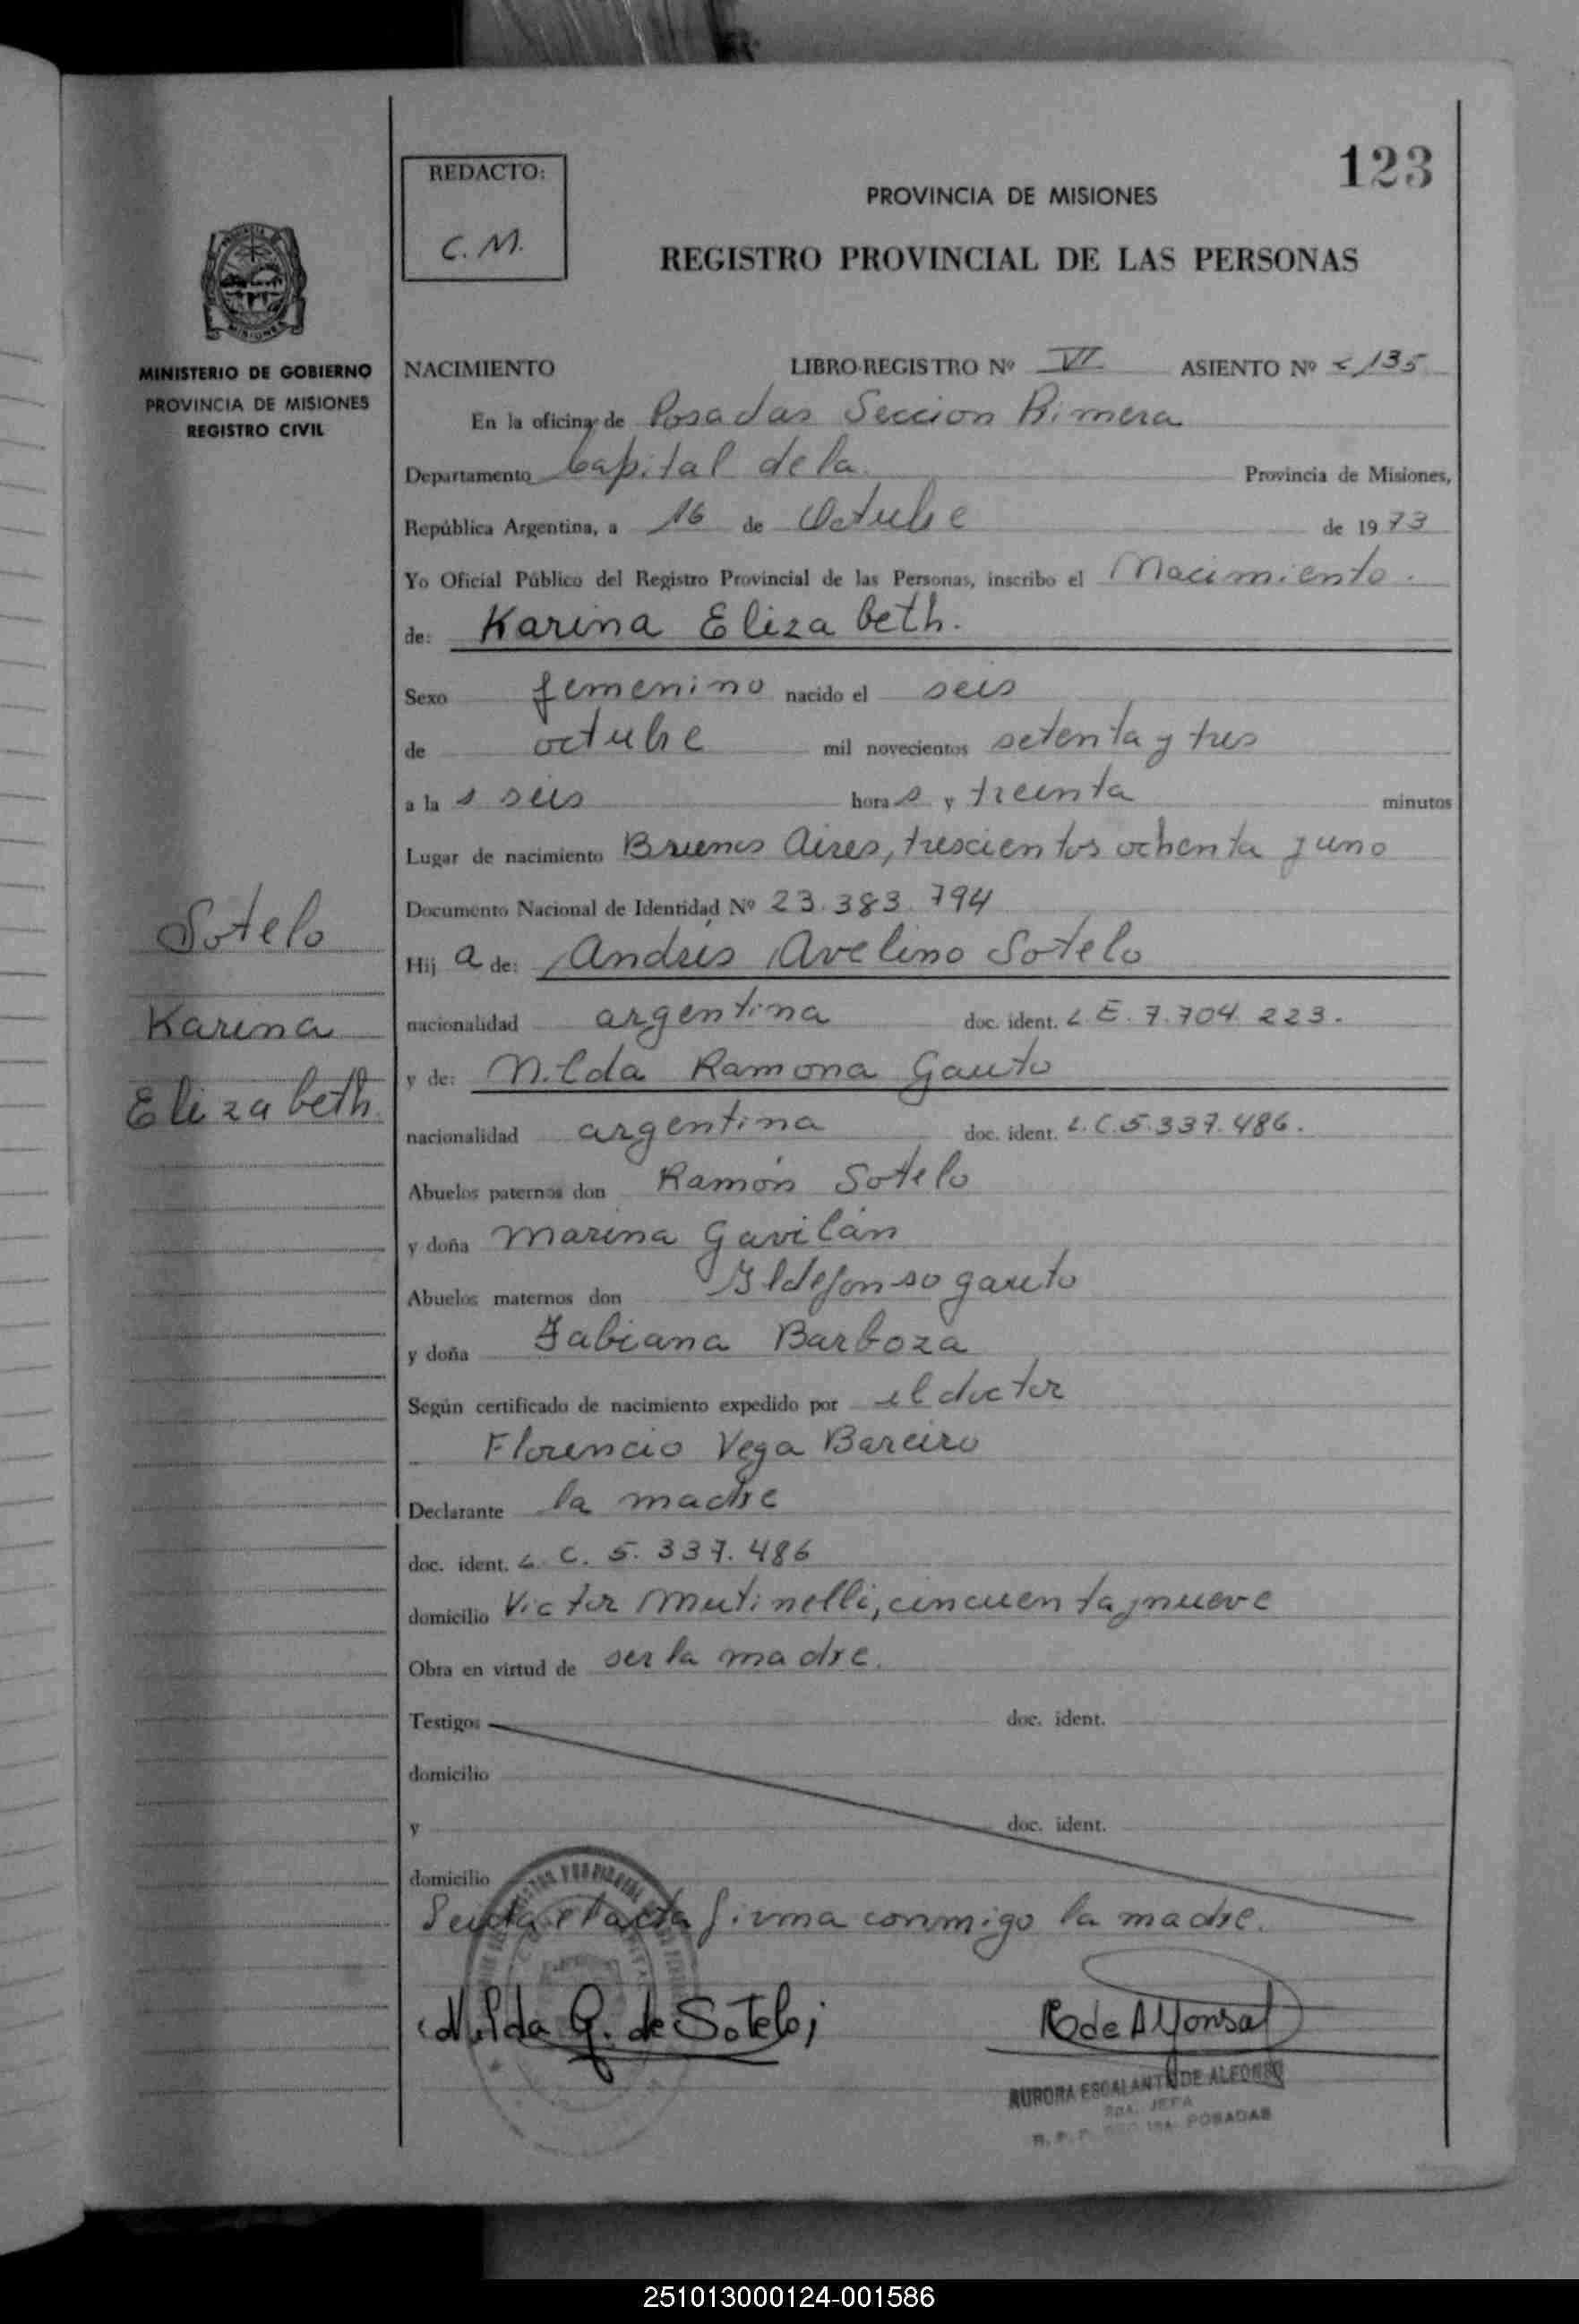 123
REDACTO:
C. M.
PROVINCIA DE MISIONES
REGISTRO PROVINCIAL DE LAS PERSONAS
MISIONES
MINISTERIO DE GOBIERNO
PROVINCIA DE MISIONES
REGISTRO CIVIL
NACIMIENTO LIBRO-REGISTRO Nº VI ASIENTO Nº 135
En la oficina de Posadas Seccion Primera
Departamento Capital de la Provincia de Misiones,
República Argentina, a 16 de Octubre de 1973
Yo Oficial Público del Registro Provincial de las Personas, inscribo el Nacimiento.
de: Karina Elizabeth.
Sexo femenino nacido el seis
de octubre mil novecientos setenta y tres
a las seis horas y treinta minutos
Lugar de nacimiento Buenos Aires, trescientos ochenta y uno
Documento Nacional de Identidad Nº 23.383.794
Hija de: Andrés Avelino Sotelo
nacionalidad argentina doc. ident. L.E. 7.704.223.
y de: Nilda Ramona Gauto
nacionalidad argentina doc. ident. L.C. 5.337.486.
Abuelos paternos don Ramón Sotelo
y doña Marina Gavilán
Abuelos maternos don Ildefonso Gauto
y doña Fabiana Barboza
Según certificado de nacimiento expedido por el doctor
Florencio Vega Bareiro
Declarante la madre
doc. ident. L. C. 5.337.486
domicilio Victor Mutinelli, cincuenta y nueve
Obra en virtud de ser la madre.
Testigos doc. ident.
domicilio
y doc. ident.
domicilio
Leida el acta firma conmigo la madre.
Nilda G. de Sotelo
AURORA ESCALANTE DE ALFONSO
JEFA
POSADAS
Sotelo
Karina
Elizabeth
251013000124-001586